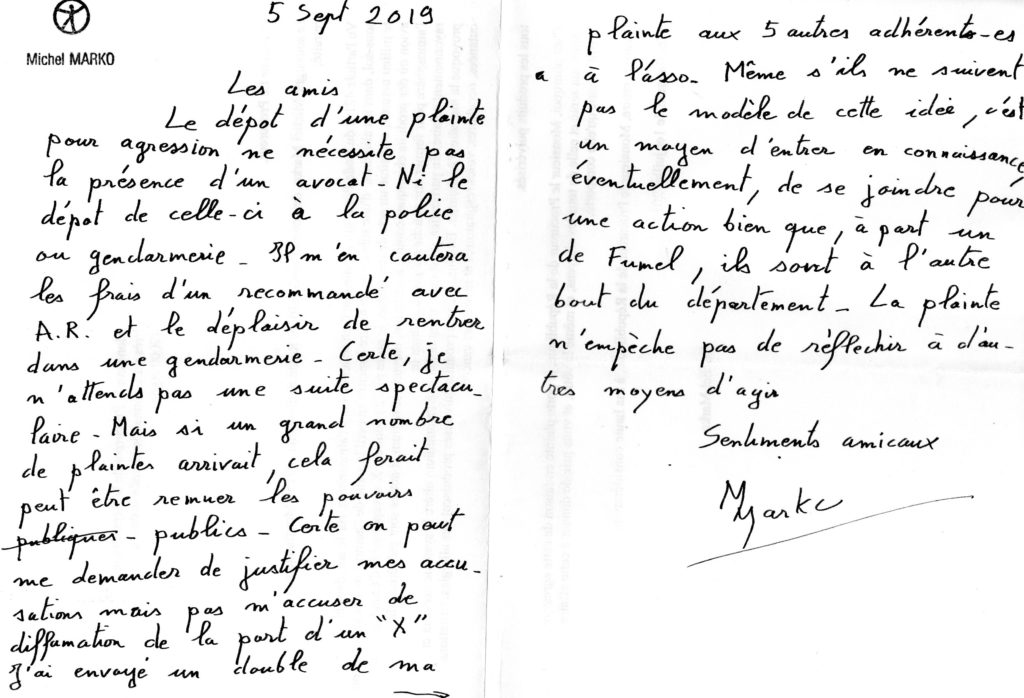 5 Sept 2019
Michel MARKO
Les amis
Le dépot d'une plainte
pour agression ne nécessite pas
la présence d'un avocat - Ni le
dépot de celle-ci à la police
ou gendarmerie - Il m'en coutera
les frais d'un recommandé avec
A.R. et le déplaisir de rentrer
dans une gendarmerie - Certe, je
n'attends pas une suite spectacu-
laire - Mais si un grand nombre
de plaintes arrivait, cela ferait
peut être remuer les pouvoirs
publiques - publics - Certe on peut
me demander de justifier mes accu-
sations mais pas m'accuser de
diffamation de la part d'un "X"
J'ai envoyé un double de ma
plainte aux 5 autres adhérents-es
à à l'asso - Même s'ils ne suivent
pas le modèle de cette idée, c'est
un moyen d'entrer en connaissance
éventuellement, de se joindre pour
une action bien que, à part un
de Fumel, ils sont à l'autre
bout du département - La plainte
n'empèche pas de réflechir à d'au-
tres moyens d'agir
Sentiments amicaux
MMarko